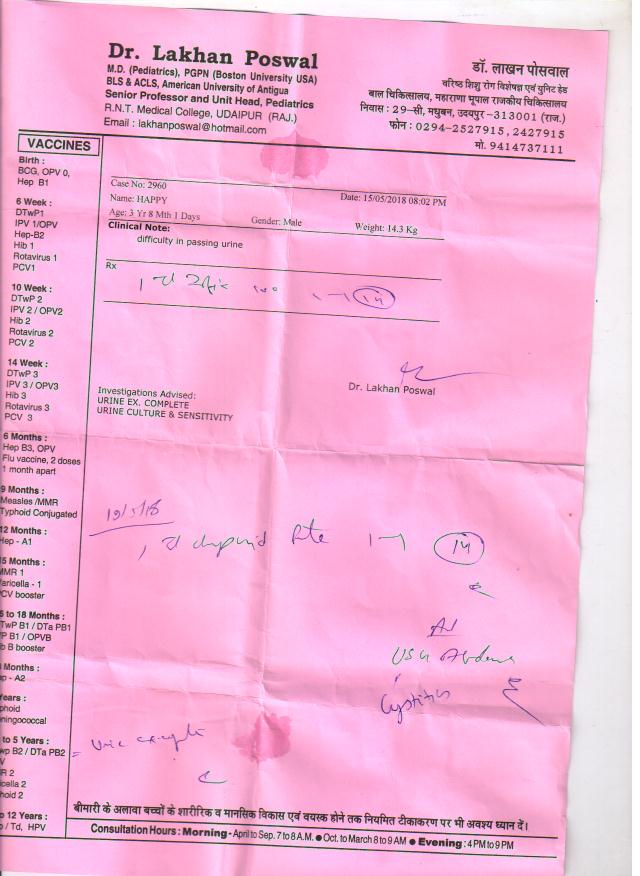 Dr. Lakhan Poswal
M.D. (Pediatrics), PGPN (Boston University USA)
BLS & ACLS, American University of Antigua
Senior Professor and Unit Head, Pediatrics
R.N.T. Medical College, UDAIPUR (RAJ.)
Email : lakhanposwal@hotmail.com
डॉ. लाखन पोसवाल
वरिष्ठ शिशु रोग विशेषज्ञ एवं युनिट हेड
बाल चिकित्सालय, महाराणा भूपाल राजकीय चिकित्सालय
निवास : 29-सी, मधुबन, उदयपुर-313001 (राज.)
फोन : 0294-2527915, 2427915
मो. 9414737111
VACCINES
Birth :
BCG, OPV 0,
Hep B1
6 Week :
DTwP1
IPV 1/OPV
Hep-B2
Hib 1
Rotavirus 1
PCV1
10 Week :
DTwP 2
IPV 2 / OPV2
Hib 2
Rotavirus 2
PCV 2
14 Week :
DTwP 3
IPV 3 / OPV3
Hib 3
Rotavirus 3
PCV 3
6 Months :
Hep B3, OPV
Flu vaccine, 2 doses
1 month apart
9 Months :
Measles /MMR
Typhoid Conjugated
12 Months :
Hep - A1
5 Months :
MMR 1
aricella - 1
CV booster
6 to 18 Months :
TwP B1 / DTa PB1
P B1 / OPVB
b B booster
Months :
p - A2
ears :
phoid
ningococcal
to 5 Years :
wp B2 / DTa PB2
V
R 2
icella 2
hoid 2
o 12 Years :
/ Td, HPV
Case No: 2960
Date: 15/05/2018 08:02 PM
Name: HAPPY
Age: 3 Yr 8 Mth 1 Days
Gender: Male
Weight: 14.3 Kg
Clinical Note:
difficulty in passing urine
Rx
14
Dr. Lakhan Poswal
Investigations Advised:
URINE EX. COMPLETE
URINE CULTURE & SENSITIVITY
19/5/18
14
USG Abdomen
Cystitis
बीमारी के अलावा बच्चों के शारीरिक व मानसिक विकास एवं वयस्क होने तक नियमित टीकाकरण पर भी अवश्य ध्यान दें।
Consultation Hours : Morning - April to Sep. 7 to 8 A.M. ● Oct. to March 8 to 9 AM ● Evening : 4 PM to 9 PM